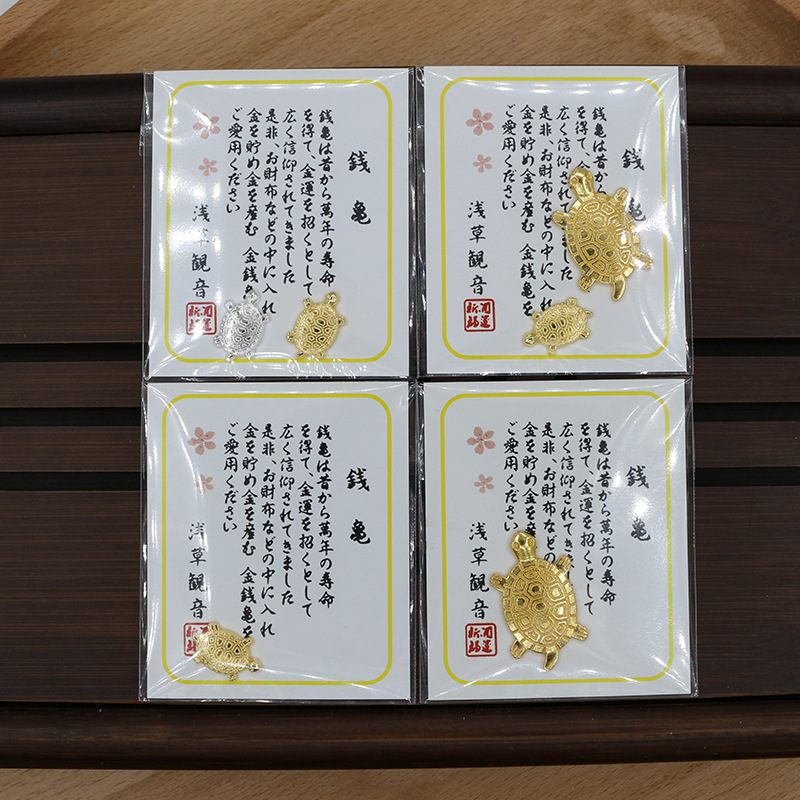 銭亀
銭亀は昔から萬年の寿命
を得て、金運を招くとして
広く信仰されてきました
是非、お財布などの中に入れ
金を貯め金を産む 金銭亀を
ご愛用ください
浅草観音
銭亀
銭亀は昔
を得て、
広く信仰
是非、お財布などの中に入れ
金を貯め金を産む 金銭亀を
ご愛用ください
浅草観音
銭亀
銭亀は昔から萬年の寿命
を得て、金運を招くとして
広く信仰されてきました
是非、お財布などの中に入れ
金を貯め金を産む 金銭亀を
ご愛用ください
浅草観音
銭亀
銭亀は昔から萬年の寿命
を得て、金運を招くとして
広く信仰され
是非、お財布
金を貯め金を
ご愛用ください
浅草観音